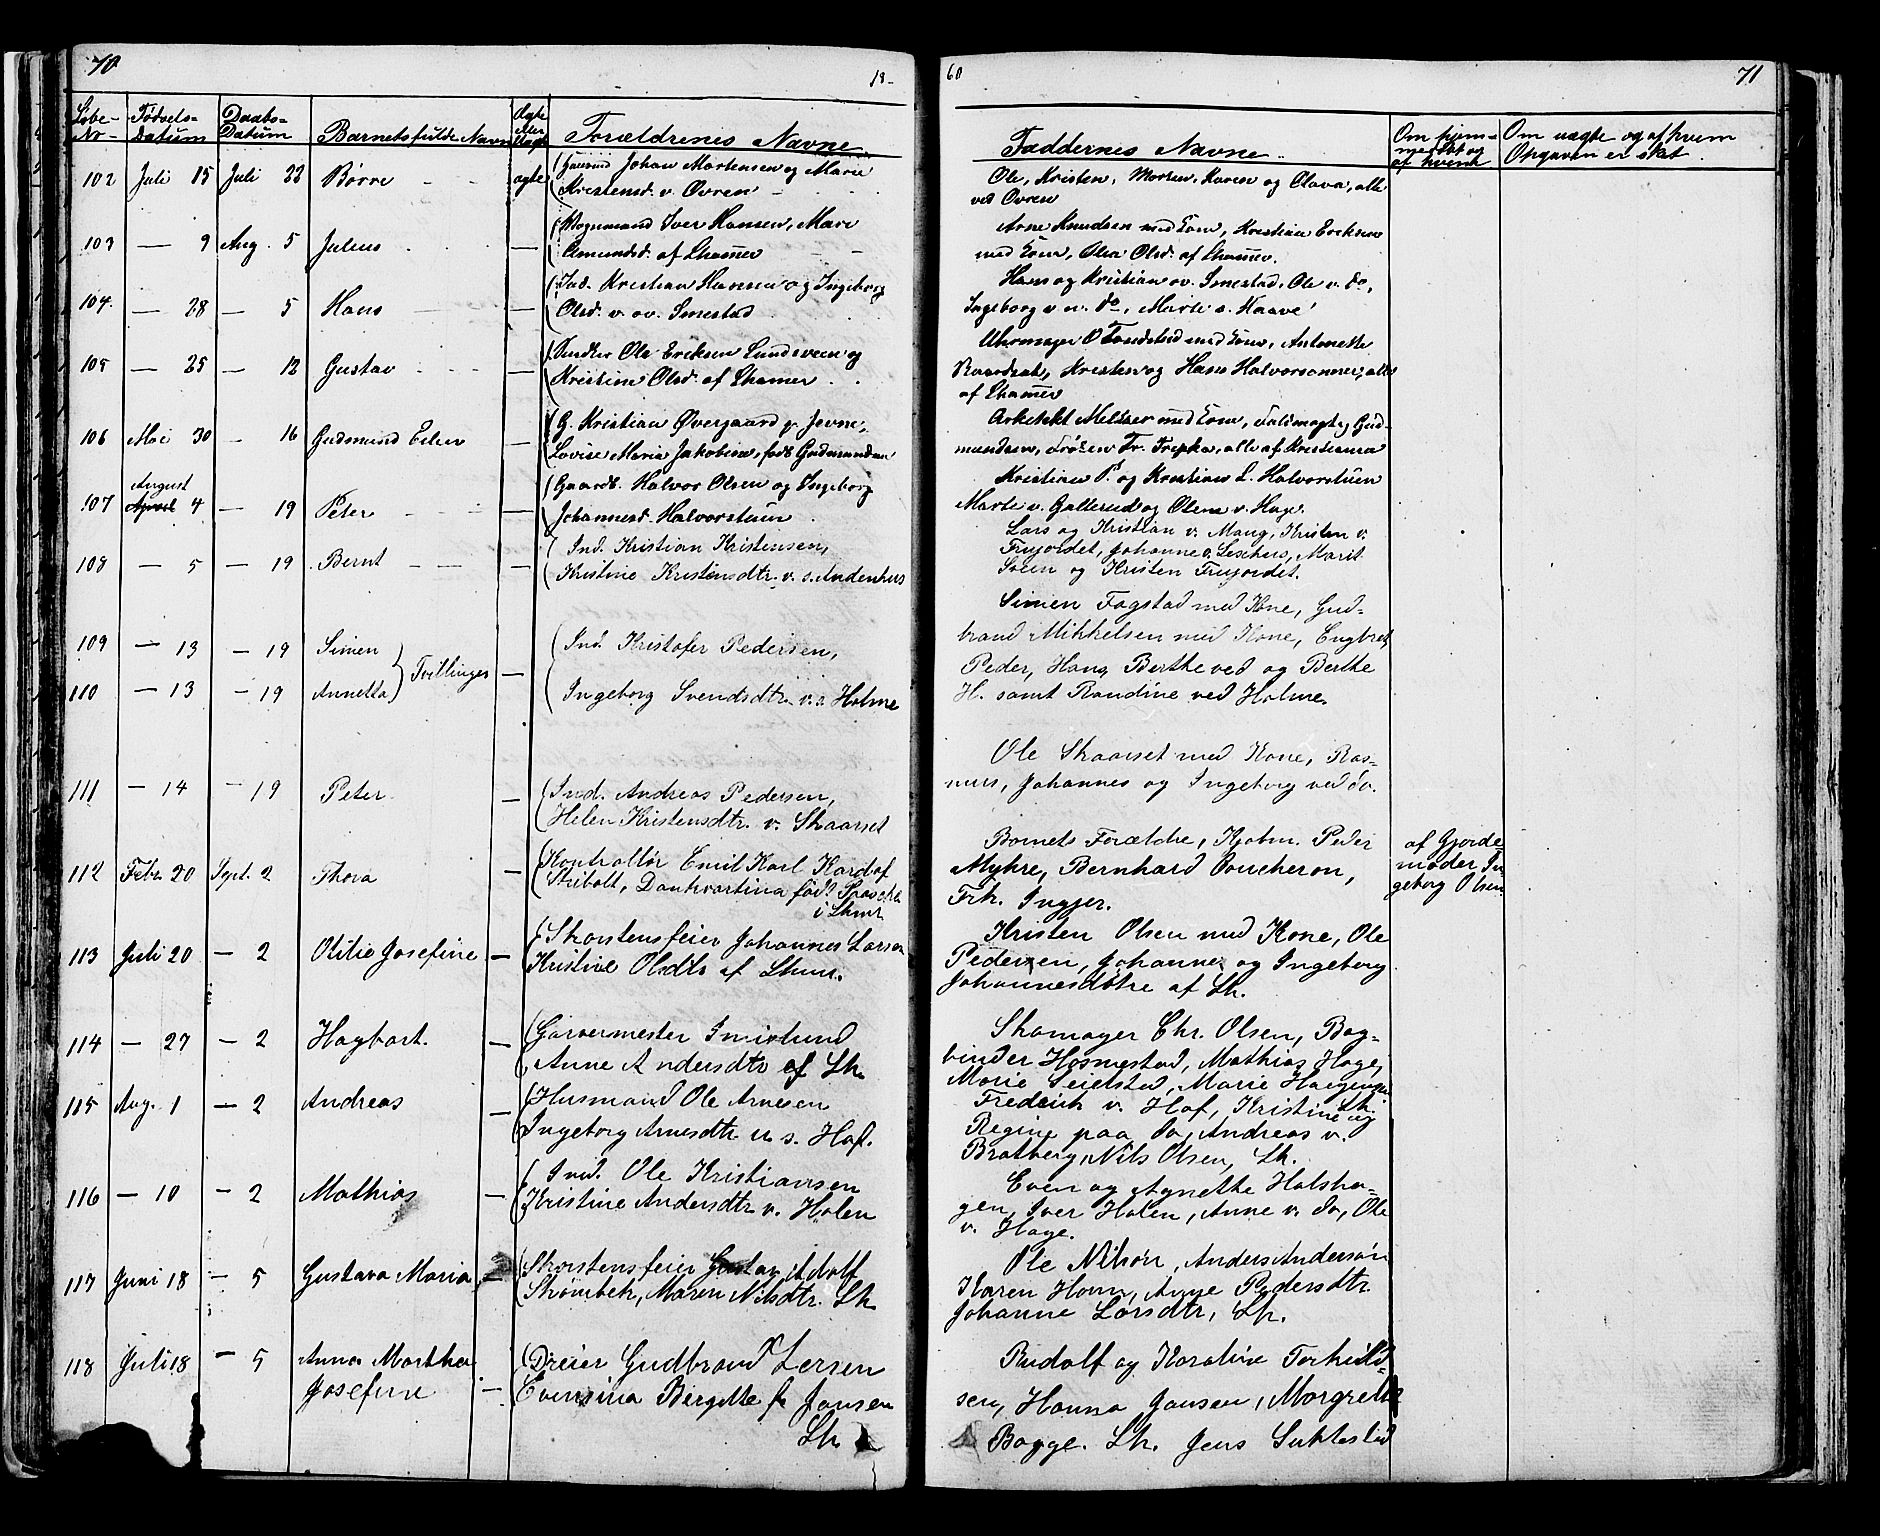 70
18-
Løbe- Fødsels- Daabs- Barnets fulde Navn Ægte eller Uægte Forældrenes Navne
No- Datum Datum
102 Juli 15 Juli 22 Børre - - ægte (Gaarmd Johan Mortensen og Marie
Kristensd. v. Øvren -
103 — 9 Aug. 5 Julius . — (Vognmand Iver Hansen, Mari
Amundsd. af Lhamer
104. — 28 — 5 Hans — (Ind. Kristian Hansen og Ingeborg
Olsd. v. ov. Smestad
105 — 25 — 12 Gustav — (Snedker Ole Eriksen Lundsveen og
Kristine Olsd. af Lhamer
106 Mai 30 — 16 Gudmund Eilen — (G. Kristian Øvergaard p. Jevne,
Lovise Maria Jakobine, født Gudmundsen
August
107 April 4 — 19 Peter — (Gaardb. Halvor Olsen og Ingeborg
Johannesd. Halvorstuen
108 — 5 — 19 Bernt — — — (Ind. Kristian Kristensen,
Kristine Kristensdtr. v. s. Andenhus
109 — 13 — 19 Simen } Tvillinger — (Ind. Kristofer Pedersen,
110 — 13 — 19 Annetta Ingeborg Svendsdtr. v. s. Holme
111 — 14 — 19 Peter — (Ind. Andreas Pedersen,
Helen Kristensdtr. v. Skaarset
112 Febr. 20 Sept. 2 Thora — (Kontrollør Emil Karl Kardof
Stibolt, Dankvartina født
i Lhmr
113 Juli 20 — 2 Otilie Josefine — (Skorstensfeier Johannes Larsen
Kristine Olsdtr af Lhmr.
114 — 27 — 2 Hagbart. — (Garvermester Smidlund
Anne Andersdtr af Lh.
115 Aug. 1 — 2 Andreas — (Husmand Ole Arnesen
Ingeborg Arnesdtr u. s. Hof.
116 — 10 — 2 Mathias — (Ind. Ole Kristiansen
Kristine Andersdtr v. Holen
117 Juni 18 — 5 Gustava Maria — (Skorstensfeier Gustav Adolf
Strømbek, Maren Nilsdtr. Lh
118 Juli 18 — 5 Anna Martha (Dreier Gudbrand Larsen
Josefine — Evensina Bergitte f. Jansen
Lh.
60
71
Faddernes Navne. Om hjem- Om uægte og af hvem
medøbt og Opgaven er sket.
af hvem
Ole, Kristen, Morten, Karen og Olava, alle
ved Øvren
Arne Knudsen med Kone, Kristian Eriksen
med Kone, Olea Olsd. af Lhamer.
Hans og Kristian ov. Smestad, Ole v. do,
Ingeborg v n. do, Marte s. Haave
Uhrmager O Tandstad med Kone, Antonette
Kristen og Hans Halvorsønner, alle
af Lhamer
Arkitekt Meltzer med Kone, Guld-
mundsen, Frøken Fr. Trepka, alle af Kristiania
Kristian P. og Kristian L. Halvorstuen
Marte v. Galterud og Olene v. Hage.
Lars og Kristian v. Maug, Kristen v.
Frujordet, Johanne v. Leschus, Marit
Sveen og Kristen Frujordet.
Simen Fagstad med Kone, Gud-
brand Mikkelsen med Kone, Engbret,
Peder, Hans, Berthe ved og Berthe
H. samt Randine ved Holme.
Ole Skaarset med Kone, Ras-
mus, Johannes og Ingeborg ved do.
Barnets Forældre, Kjøbm. Peder af Gjorde-
Myhre, Bernhard Boucheron, moder In
Frk. Ingjer. geborg Olsen
Kristen Olsen med Kone, Ole
Pedersen, Johanne og Ingeborg
Johannesdøtre af Lh.
Skomager Chr. Olsen, Bog-
binder Hosmestad, Mathias Hage,
Marie Seielstad, Marie Haugengen
Lh.
Fredrik v. Hof, Kristine og
Regine paa do, Andreas v.
Bratberg, Nils Olsen, Lh.
Even og Agnette Holsha-
gen, Iver Holen, Anne v. do, Ole
v. Hage.
Ole Nilson, Anders Anderson
Karen Horn, Anne Pedersdtr.
Johanne Larsdtr, Lh.
Rudolf og Karoline Torkild-
sen, Hanna Jansen, Margrethe
Bagge. Lh. Jens Sukkestad